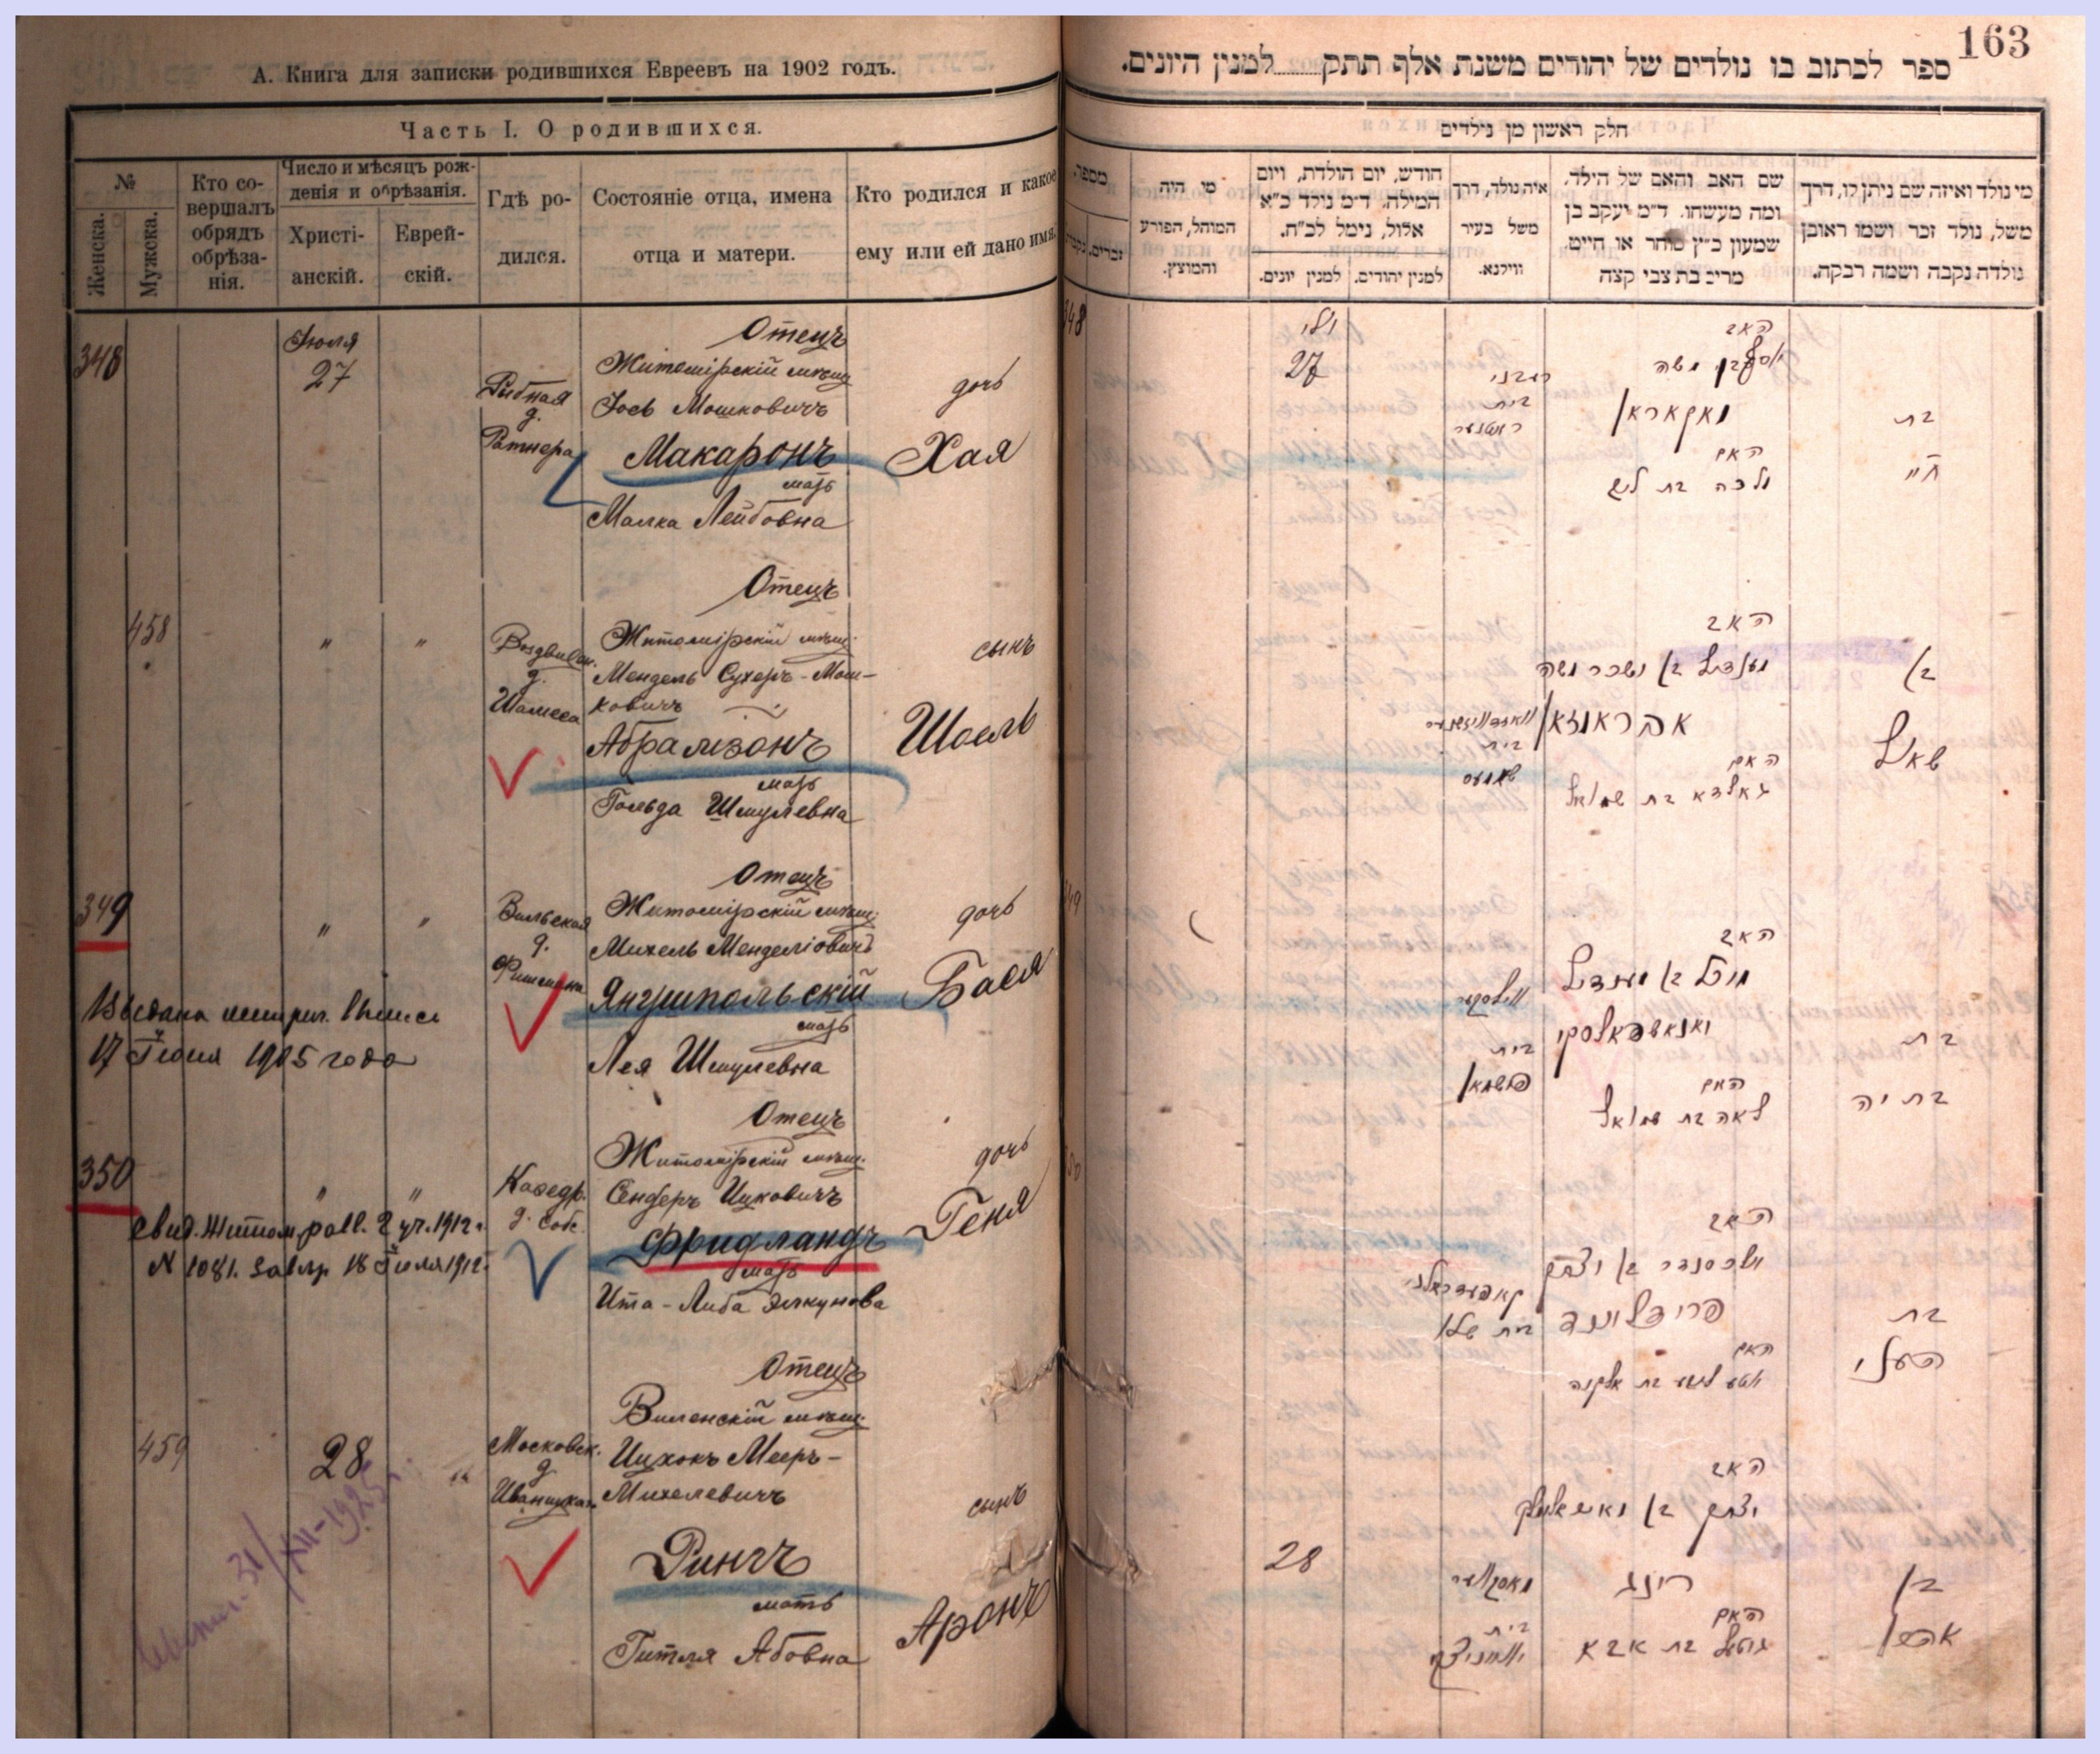 А. Книга для записки родившихся Евреевъ на 1902 годъ.
Часть I. О родившихся.
№
Женска.
Мужска.
Кто со-
вершалъ
обрядъ
обрѣза-
нія.
Число и мѣсяцъ рож-
денія и обрѣзанія.
Христі-
анскій.
Еврей-
скій.
Гдѣ ро-
дился.
Состояніе отца, имена
отца и матери.
Кто родился и какое
ему или ей дано имя.
348
Іюля
27
Рыбная
д.
Ратнера
Отецъ
Житомірскій мѣщ.
Іось Мошковичъ
Макаронъ
мать
Малка Лейбовна
дочь
Хая
458
" "
Воздвижен.
д.
Шамеса
Отецъ
Житомірскій мѣщ.
Мендель Сухеръ-Мош-
ковичъ
Абрамзонъ
мать
Гольда Шмулевна
сынъ
Шоель
349
" "
Вильская
д.
Фишмана
Отецъ
Житомірскій мѣщ.
Михель Менделіовичъ
Янушпольскій
мать
Лея Шмулевна
дочь
Бася
Выдана метрич. выпись
17 Іюня 1905 года
350
" "
Каѳедр.
д. Собс.
Отецъ
Житомірскій мѣщ.
Сендеръ Ицковичъ
Фридландъ
мать
Ита-Либа Элкунова
дочь
Геня
свид. Житом. равв. 2 уч. 1912 г.
N 1081. завѣр 18 Іюля 1912.
459
28 "
Московск.
д
Иваницкаго
Отецъ
Виленскій мѣщ.
Ицхокъ Мееръ-
Михелевичъ
Рингъ
мать
Гитля Абовна
сынъ
Аронъ
31/XII-1925 г.
163
ספר לכתוב בו נולדים של יהודים משנת אלף תתק......למנין היונים.
חלק ראשון מן נילדים
מספר.
זכרים.
נקבות
מי היה
המוהל, הפורע
והמוצץ.
חודש, יום הולדת, ויום
המילה. ד״מ נולד כ״א
אלול, נימל לכ״ח.
למנין יונים.
למנין יהודים.
איה נולד, דרך
משל בעיר
ווילנא.
שם האב והאם של הילד.
ומה מעשהו. ד״מ יעקב בן
שמעון כ״ץ סוחר או חייט.
מרים בת צבי קצה
מי נולד ואיזה שם ניתן לו, דרך
משל, נולד זכר ושמו ראובן
נולדה נקבה ושמה רבקה.
348
יולי
27
ריבני
בית
ראטנער
האב
יוסף בן משה
מאקאראן
האם
מלכה בת ליב
בת
חי׳
בית
שאמעס
האב
מענדיל בן ישכר משה
אבראמזאן
האם
גאלדא בת שמואל
בן
שאול
349
ווילסקער
בית
פישמאן
האב
מיכל בן מענדיל
יאנושפאלסקי
האם
לאה בת שמואל
בת
בתיה
350
קאפעדראלני
בית שלו
האב
אלכסנדר בן יצחק
פרידלאנד
האם
איטע ליבע בת אלקנה
בת
העני
28
מאסקווער
בית
האב
רינג
האם
גיטל בת אבא
בן
אהרן